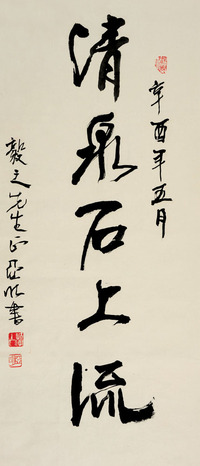 辛酉年五月
清泉石上流
毅之先生正亞明書